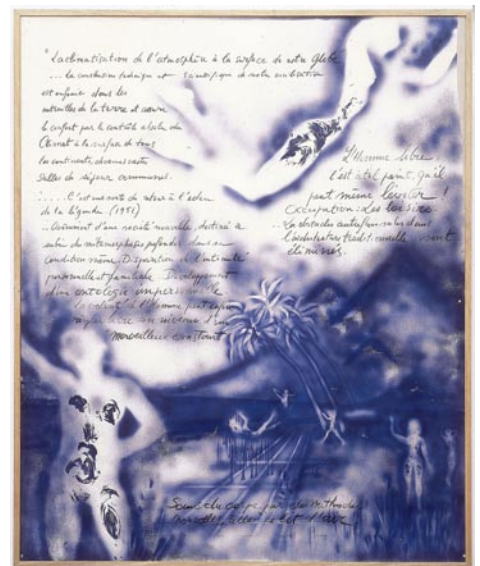 "La climatisation de l'atmosphère à la surface de notre Globe
... la conclusion technique et scientifique de notre civilisation
est enfouie dans les
entrailles de la terre et assure
le confort par le contrôle absolu du
Climat à la surface de tous
les continents, devenus vastes
salles de séjour communes.
..... C'est une sorte de retour à l'éden
de la légende (1951)
.. Avènement d'une société nouvelle, destinée à
subir des métamorphoses profondes dans sa
condition même. Disparition de l'intimité
personnelle et familiale. Développement
d'une ontologie impersonnelle
la volonté de l'Homme peut enfin
régler la vie au niveau d'un
merveilleux constant
L'Homme libre
l'est à tel point, qu'il
peut même léviter !
Occupation : Les loisirs
.. Les obstacles autrefois subis dans
l'architecture traditionnelle sont
éliminés.
Soins du corps par des méthodes
nouvelles,